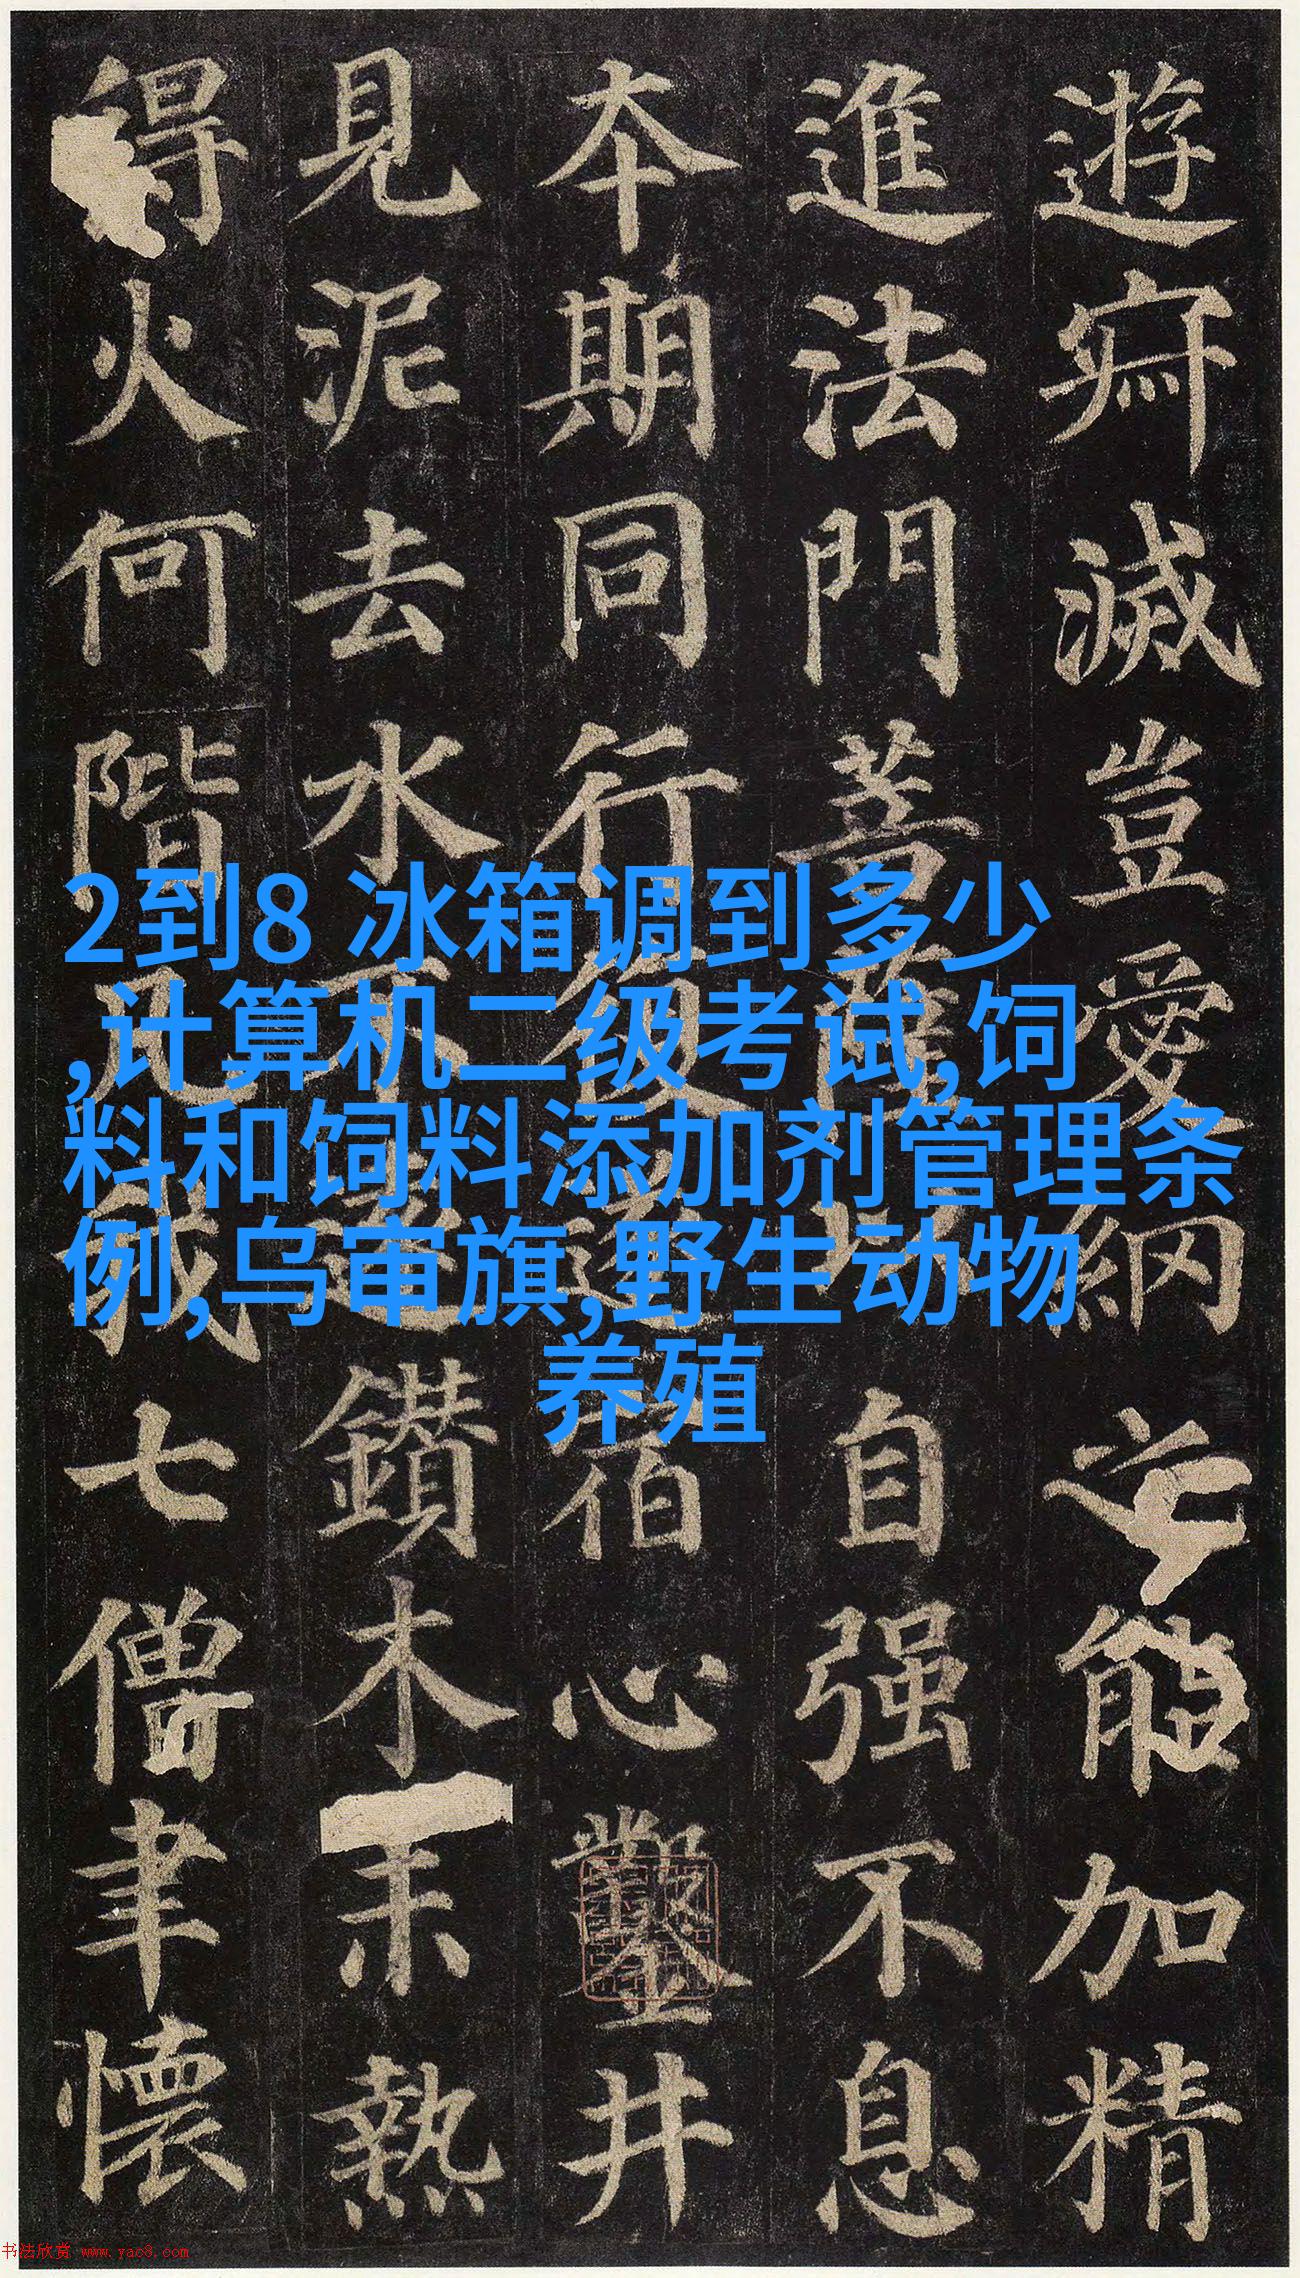 2到8 冰箱调到多少
,计算机二级考试,饲
料和饲料添加剂管理条
例,乌审旗,野生动物
养殖
遊寂滅豈愛網之能加精
進法門菩薩以自强不息
本期同行復遂宿心鑿井
見泥去水不遠鑽木未熱
得火何階凡我七僧聿懷
书法欣赏 www.yac8.com